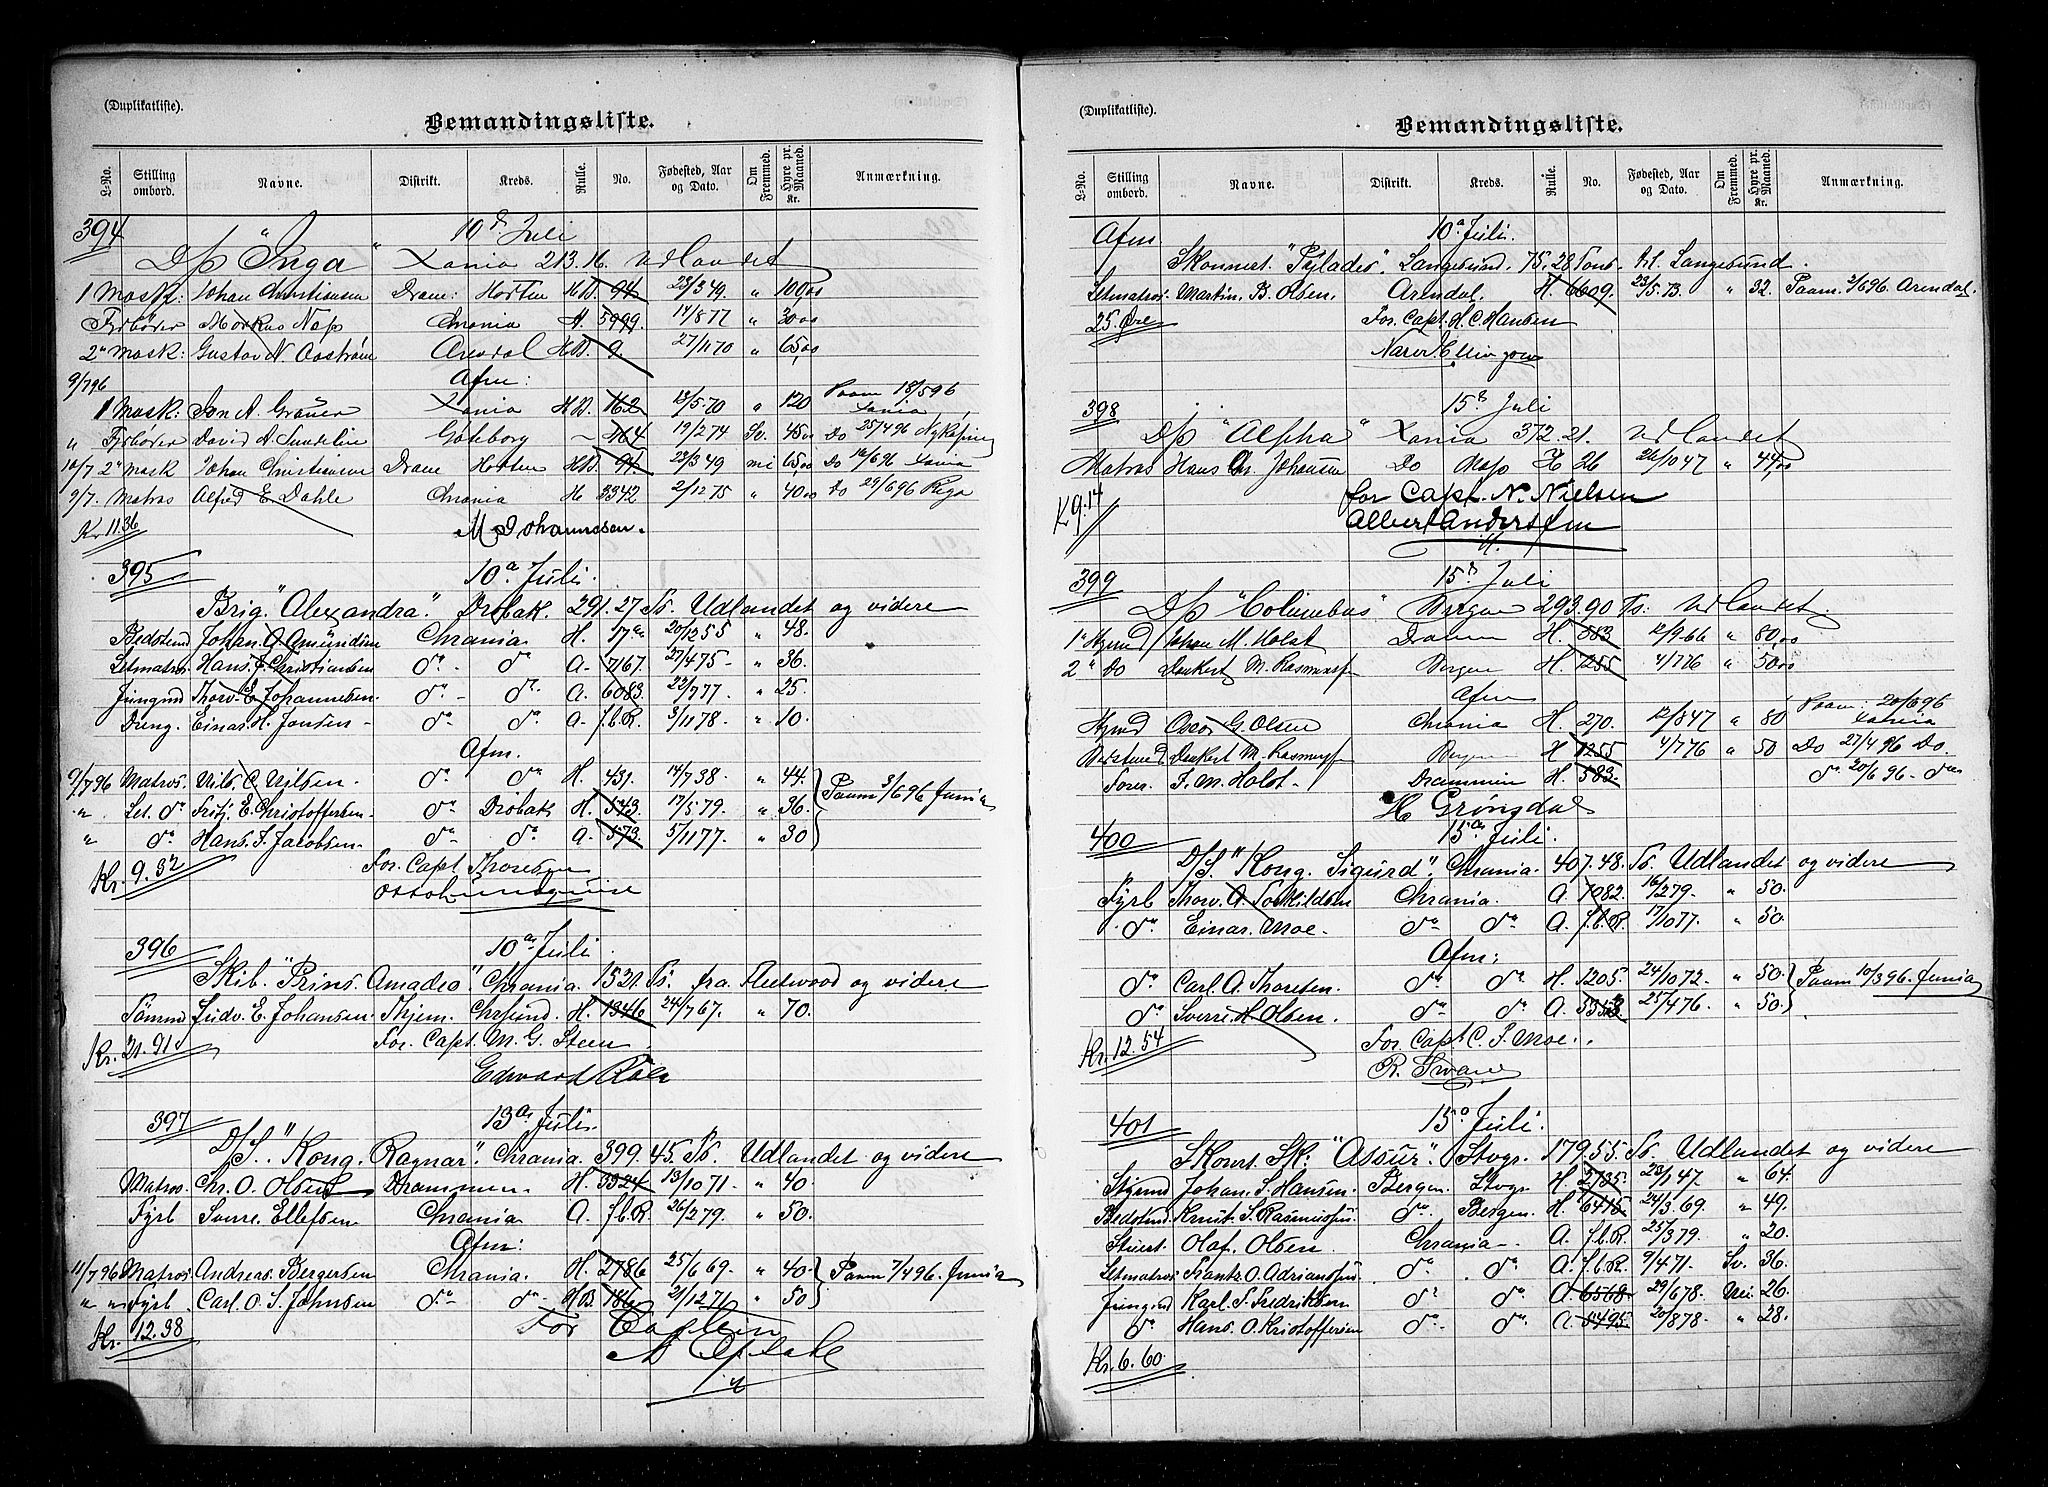 (Duplikatliste).
Bemandingsliste.
L-No. Stilling ombord. Navne. Distrikt. Kreds. Rulle. No. Fødested, Aar og Dato. Om Fremmed. Hyre pr. Maaned. Kr. Anmærkning.
394 10d Juli
D/s "Inga" Xania 213.16. Udlandet
1 Mask: Johan Christiansen Dram: Horten H.B. 94. 23/3 49. " 100 00
Fyrbøder Markus Næss Chrania H. 5999. 14/8 77 " 30 00
2n Mask: Gustav N. Aastrøm Arendal H.B. 9. 27/1 70 " 65,00
9/7 96 Afm:
1 Mask: Jon A. Grauer Xania H.B. 162 13/5 70 " 120 Paam 18/5 96 Xania
" Fyrbøder David A. Sundelin Göteborg – 464 19/2 74 Sv. 45 00 Do 25/4 96 Nykøping
10/7 2n Mask Johan Christiansen Dram Horten H.B. 94. 23/3 49 nei 65 00 Do 16/6 96 Xania
9/7. Matros Alfred E. Dahle Chrania H. 3342 2/12 75 " 40 00 Do 29/6 96 Riga
Kr 11.36 M. Johannesen.
395 10a Juli.
Brig. "Alexandra". Drøbak. 291.27 Ts. Udlandet og videre
Bedstmd Johan. A. Amundsen Chrania. H. 17a 20/12 55 " 48.
Letmatros. Hans. J. Christiansen do – do A. 7167. 27/4 75 – " 36.
Jungmd Thorv. E. Johannesen. do – do. A. 6083. 22/7 77. " 25.
Dreng. Einar. H. Jensen – do do. A. f.b.R. 3/11 78. " 10.
Afm.
9/7 96 Matros. Nils. C. Nilsen. do do H. 431. 14/7 38. " 44. Paam 3/6 96 Junia
" Let. do Fritj. E. Christoffersen. do Drøbak H. 543. 17/5 79. " 36.
" do Hans. F. Jacobsen. do do. A. 573. 5/11 77. " 30
Kr. 9.32 For. Capt. Thoresen
396 10a Juli.
Skib. "Prins. Amadeo". Chrania. 1521. Ts. fra. Fleetwood og videre
Tømmd Ludv. E. Johansen. Thjem. Chrsund. H. 1346 24/7 67. " 70.
Kr. 21.91 For. Capt. M. G. Steen.
397 13a Juli.
D/S. "Kong. Ragnar". Chrania. 399.45. Ts. Udlandet og videre
Matros. Chr. O. Olsen Drammen. H. 3324 13/10 71. " 40.
Fyrb Sverre. Ellefsen Chrania A. f.b.R. 26/2 79. " 50.
Afm:
11/7 96 Matros. Andreas. Bergersen Chrania. H. 2786 25/6 69. " 40. Paam 7/4 96. Junia
" " Fyrb. Carl. O. S. Johnsen do – do. H.B. 186. 21/12 71. " 50
Kr. 12.38 For Captein
(Duplikatliste).
Bemandingsliste.
L-No. Stilling ombord. Navne. Distrikt. Kreds. Rulle. No. Fødested, Aar og Dato. Om Fremmed. Hyre pr. Maaned. Kr. Anmærkning.
Afm 10a Juli.
Skonnert. "Pylades". Langesund. 75.28 Tons. til. Langesund.
Letmatros. Martin. B. Olsen. Arendal. H. 6609. " 32. Paam. 2/6 96. Arendal
25. Øre For. Capt. H. C. Hansen
398 15d Juli
D/s "Alpha" Xania 372.21. Udlandet
Matros Hans Chr. Johansen Do Moss H 26 26/10 47 " 44,00
K 9.14 for Capt. N. Nielsen
Albert Andersen
399 15d Juli
D/s "Columbus" Bergen 293.90 Ts: Udlandet.
1n Hymd Johan M. Holst Dramm H. 583 12/9 66 " 80,00
2n Do Denkert M. Rasmuss Bergen H. 1255 4/7 76 " 50,00
Afm
Hymd Oscar G. Olsen Chrania H. 270. 12/3 47 " 80 Paam. 20/6 96 Xania
Bedstemd Denkert M. Rasmuss Bergen H 1255 4/7 76 " 50 Do 27/4 96 Do.
Forer. J. M. Holst. Drammen H. 583. do 20/6 96 – do
H. Grøngdal
400 15a Juli.
D/S. "Kong. Sigurd". Chrania. 407.48. Ts. Udlandet og videre
Fyrb Thorv. A. Torkildsen Chrania. A. 7082. 16/2 79. " 50.
do. Einar. Moe. do do A. f.b.R. 17/10 77. " 50.
Afm:
do Carl. A. Thoresen. do do H. 1205. 24/10 72. " 50. Paam 10/3 96. Junia
do Sverre. H. Olsen. do do A. 5353 25/4 76. " 50
Kr. 12.54 For. Capt. C. F. Moe.
R. Svane
401 15a Juli.
Skonrt. Sk: "Assur". Stvgr. 179.55. Ts. Udlandet og videre
Styrmd Johan. S. Hansen. Bergen. Stvgr. H. 2785. 23/1 47. " 64.
Bedstmd. Knut. S. Rasmussen do Bergen. H. 6415 24/3 69. " 49.
Stuert. Olaf. Olsen. Chrania. A. f.b.R. 25/3 79. " 20.
Letmatros Frantz. O. Adriansson do do A. f.b.R. 9/4 71. Sv. 36.
Jungmd Karl. S. Fredriksen do do A. 6568. 29/6 78. Nei. 26.
do Hans. O. Kristoffersen do do A. 5495. 20/8 78. " 28.
Kr. 6.60